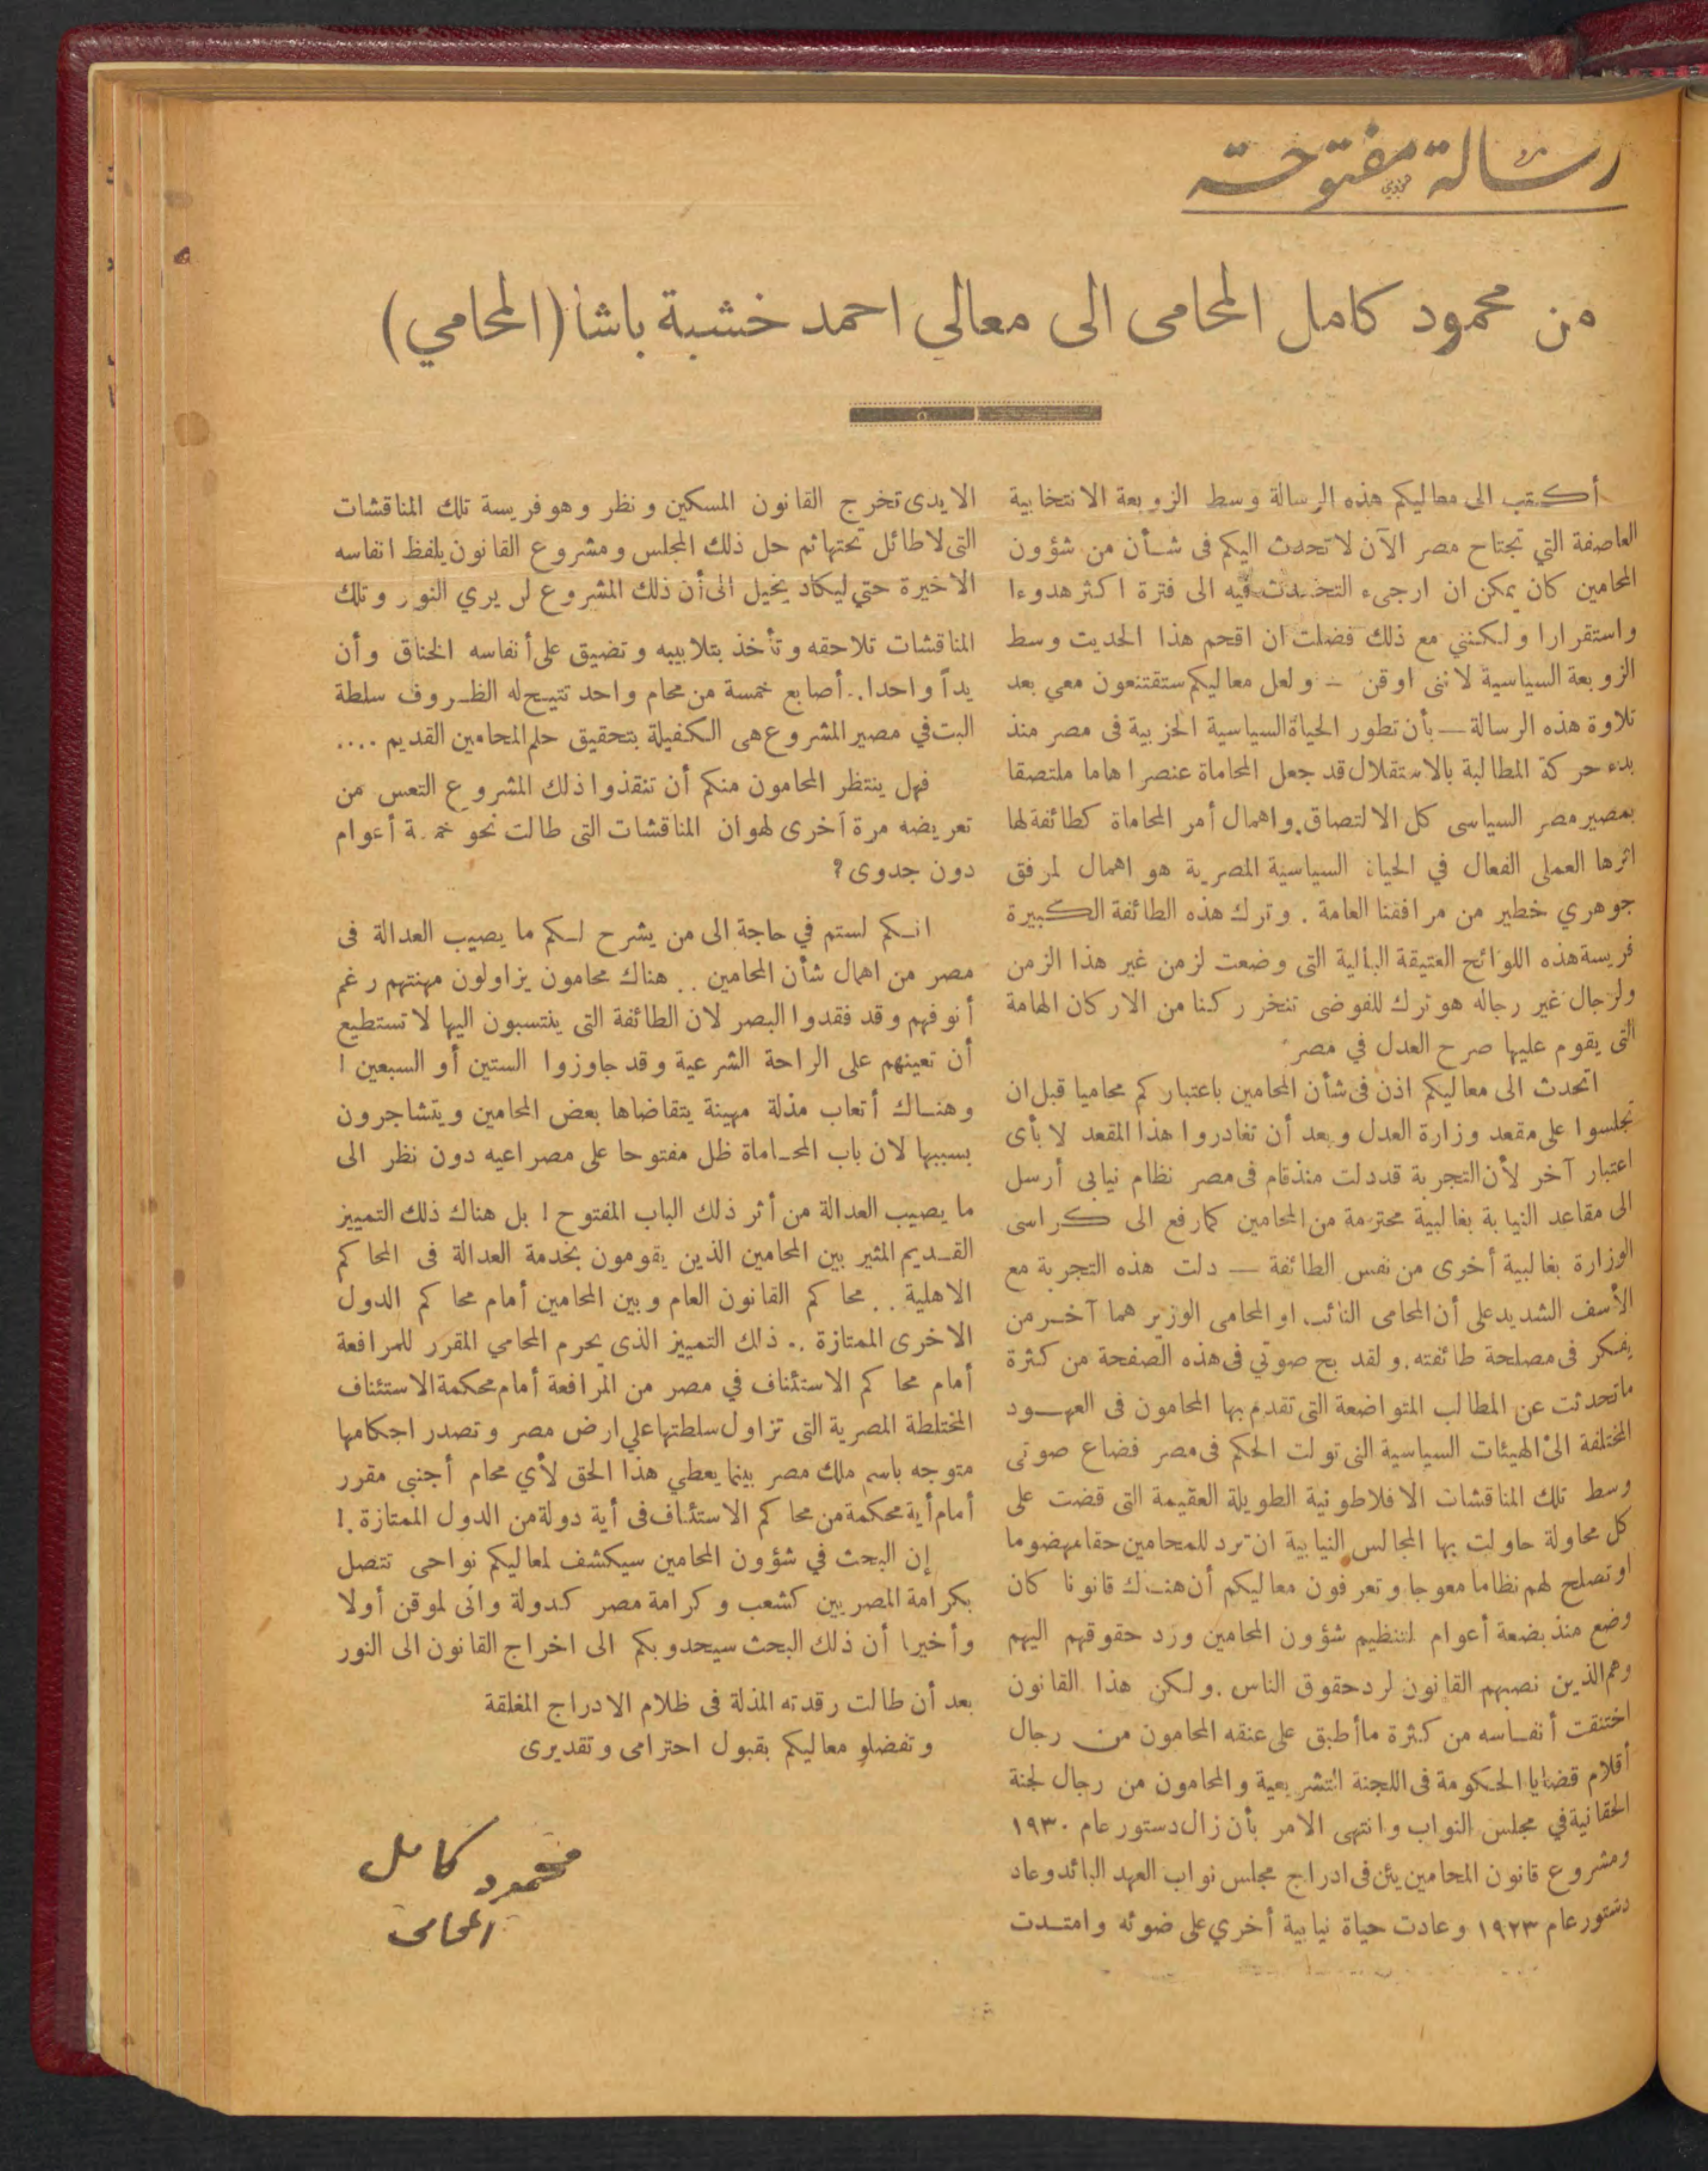 رسالة مفتوحة
من محمود كامل المحامى الى معالي احمد خشبة باشا (المحامي)
أكتب الى معاليكم هذه الرسالة وسط الزوبعة الانتخابية
العاصفة التي تجتاح مصر الآن لاتحدث اليكم فى شأن من شؤون
المحامين كان يمكن ان ارجىء التحدث فيه الى فترة اكثر هدوءا
واستقرارا ولكنني مع ذلك فضلت ان اقحم هذا الحديث وسط
الزوبعة السياسية لاننى اوقن — ولعل معاليكم ستقتنعون معي بعد
تلاوة هذه الرسالة — بأن تطور الحياة السياسية الحزبية فى مصر منذ
بدء حركة المطالبة بالاستقلال قد جعل المحاماة عنصرا هاما ملتصقا
بمصير مصر السياسى كل الالتصاق. واهمال أمر المحاماة كطائفة لها
اثرها العملى الفعال في الحياة السياسية المصرية هو اهمال لمرفق
جوهري خطير من مرافقنا العامة . وترك هذه الطائفة الكبيرة
فريسة هذه اللوائح العتيقة البالية التى وضعت لزمن غير هذا الزمن
ولرجال غير رجاله هو ترك للفوضى تنخر ركنا من الاركان الهامة
التى يقوم عليها صرح العدل في مصر
اتحدث الى معاليكم اذن فى شأن المحامين باعتباركم محاميا قبل ان
تجلسوا على مقعد وزارة العدل وبعد أن تغادروا هذا المقعد لا بأى
اعتبار آخر لأن التجربة قد دلت منذ قام فى مصر نظام نيابى أرسل
الى مقاعد النيابة بغالبية محترمة من المحامين كما رفع الى كراسى
الوزارة بغالبية أخرى من نفس الطائفة — دلت هذه التجربة مع
الأسف الشديد على أن المحامى النائب او المحامى الوزير هما آخر من
يفكر فى مصلحة طائفته. ولقد بح صوتي فى هذه الصفحة من كثرة
ماتحدثت عن المطالب المتواضعة التى تقدم بها المحامون فى العهود
المختلفة الى الهيئات السياسية التى تولت الحكم فى مصر فضاع صوتى
وسط تلك المناقشات الافلاطونية الطويلة العقيمة التى قضت على
كل محاولة حاولت بها المجالس النيابية ان ترد للمحامين حقا مهضوما
او تصلح لهم نظاما معوجا. وتعرفون معاليكم أن هناك قانونا كان
وضع منذ بضعة أعوام لتنظيم شؤون المحامين ورد حقوقهم اليهم
وهم الذين نصبهم القانون لرد حقوق الناس . ولكن هذا القانون
اختنقت أنفاسه من كثرة ما أطبق على عنقه المحامون من رجال
أقلام قضايا الحكومة فى اللجنة التشريعية والمحامون من رجال لجنة
الحقانية في مجلس النواب وانتهى الامر بأن زال دستور عام ١٩٣٠
ومشروع قانون المحامين يئن فى ادراج مجلس نواب العهد البائد وعاد
دستور عام ١٩٢٣ وعادت حياة نيابية أخري على ضوئه وامتدت
الايدى تخرج القانون المسكين ونظر وهو فريسة تلك المناقشات
التى لاطائل تحتها ثم حل ذلك المجلس ومشروع القانون يلفظ انفاسه
الاخيرة حتي ليكاد يخيل الى أن ذلك المشروع لن يري النور وتلك
المناقشات تلاحقه وتأخذ بتلابيبه وتضيق على أنفاسه الخناق وأن
يداً واحدا.. أصابع خمسة من محام واحد تتيح له الظروف سلطة
البت في مصير المشروع هى الكفيلة بتحقيق حلم المحامين القديم ....
فهل ينتظر المحامون منكم أن تنقذوا ذلك المشروع التعس من
تعريضه مرة أخرى لهوان المناقشات التى طالت نحو خمسة أعوام
دون جدوى ؟
انكم لستم في حاجة الى من يشرح لكم ما يصيب العدالة فى
مصر من اهمال شأن المحامين .. هناك محامون يزاولون مهنتهم رغم
أنوفهم وقد فقدوا البصر لان الطائفة التى ينتسبون اليها لا تستطيع
أن تعينهم على الراحة الشرعية وقد جاوزوا الستين أو السبعين !
وهناك أتعاب مذلة مهينة يتقاضاها بعض المحامين ويتشاجرون
بسببها لان باب المحاماة ظل مفتوحا على مصراعيه دون نظر الى
ما يصيب العدالة من أثر ذلك الباب المفتوح ! بل هناك ذلك التمييز
القديم المثير بين المحامين الذين يقومون بخدمة العدالة فى المحاكم
الاهلية .. محاكم القانون العام وبين المحامين أمام محاكم الدول
الاخرى الممتازة .. ذلك التمييز الذى يحرم المحامي المقرر للمرافعة
أمام محاكم الاستئناف في مصر من المرافعة أمام محكمة الاستئناف
المختلطة المصرية التى تزاول سلطتها علي ارض مصر وتصدر احكامها
متوجه باسم ملك مصر بينما يعطي هذا الحق لأي محام أجنبى مقرر
أمام أية محكمة من محاكم الاستئناف فى أية دولة من الدول الممتازة .!
إن البحث في شؤون المحامين سيكشف لمعاليكم نواحى تتصل
بكرامة المصريين كشعب وكرامة مصر كدولة وانى لموقن أولا
وأخيرا أن ذلك البحث سيحدو بكم الى اخراج القانون الى النور
بعد أن طالت رقدته المذلة فى ظلام الادراج المغلقة
وتفضلو معاليكم بقبول احترامى وتقديرى
محمود كامل
المحامى